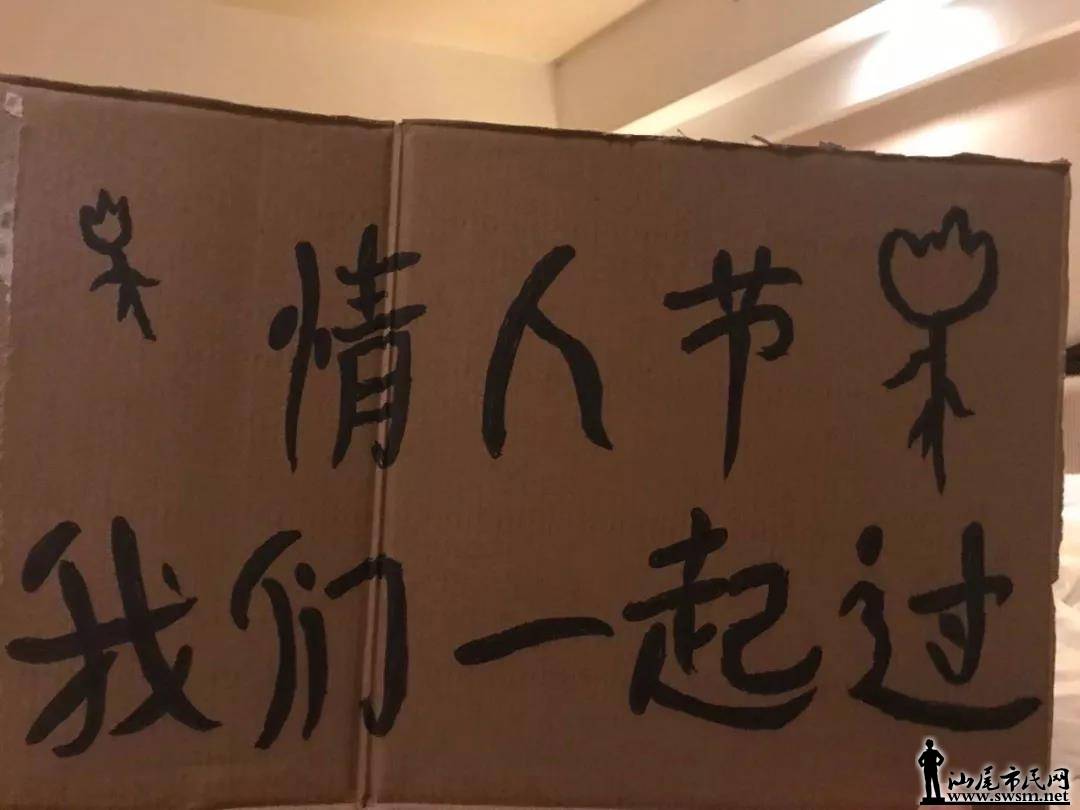 情人节
我们一起过
汕尾市民网
www.swsm.net